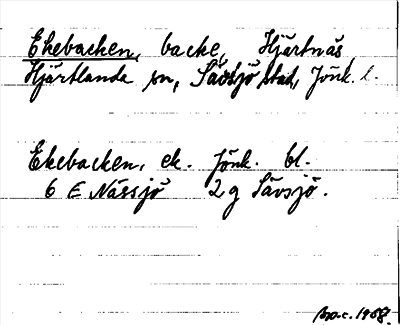 Ekebacken, backe, Hjärtnäs,
Hjärtlanda sn, Sävsjö stad, Jönk. l.
Ekebacken, ek. Jönk. bl.
6 E Nässjö 2 g Sävsjö.
1958.